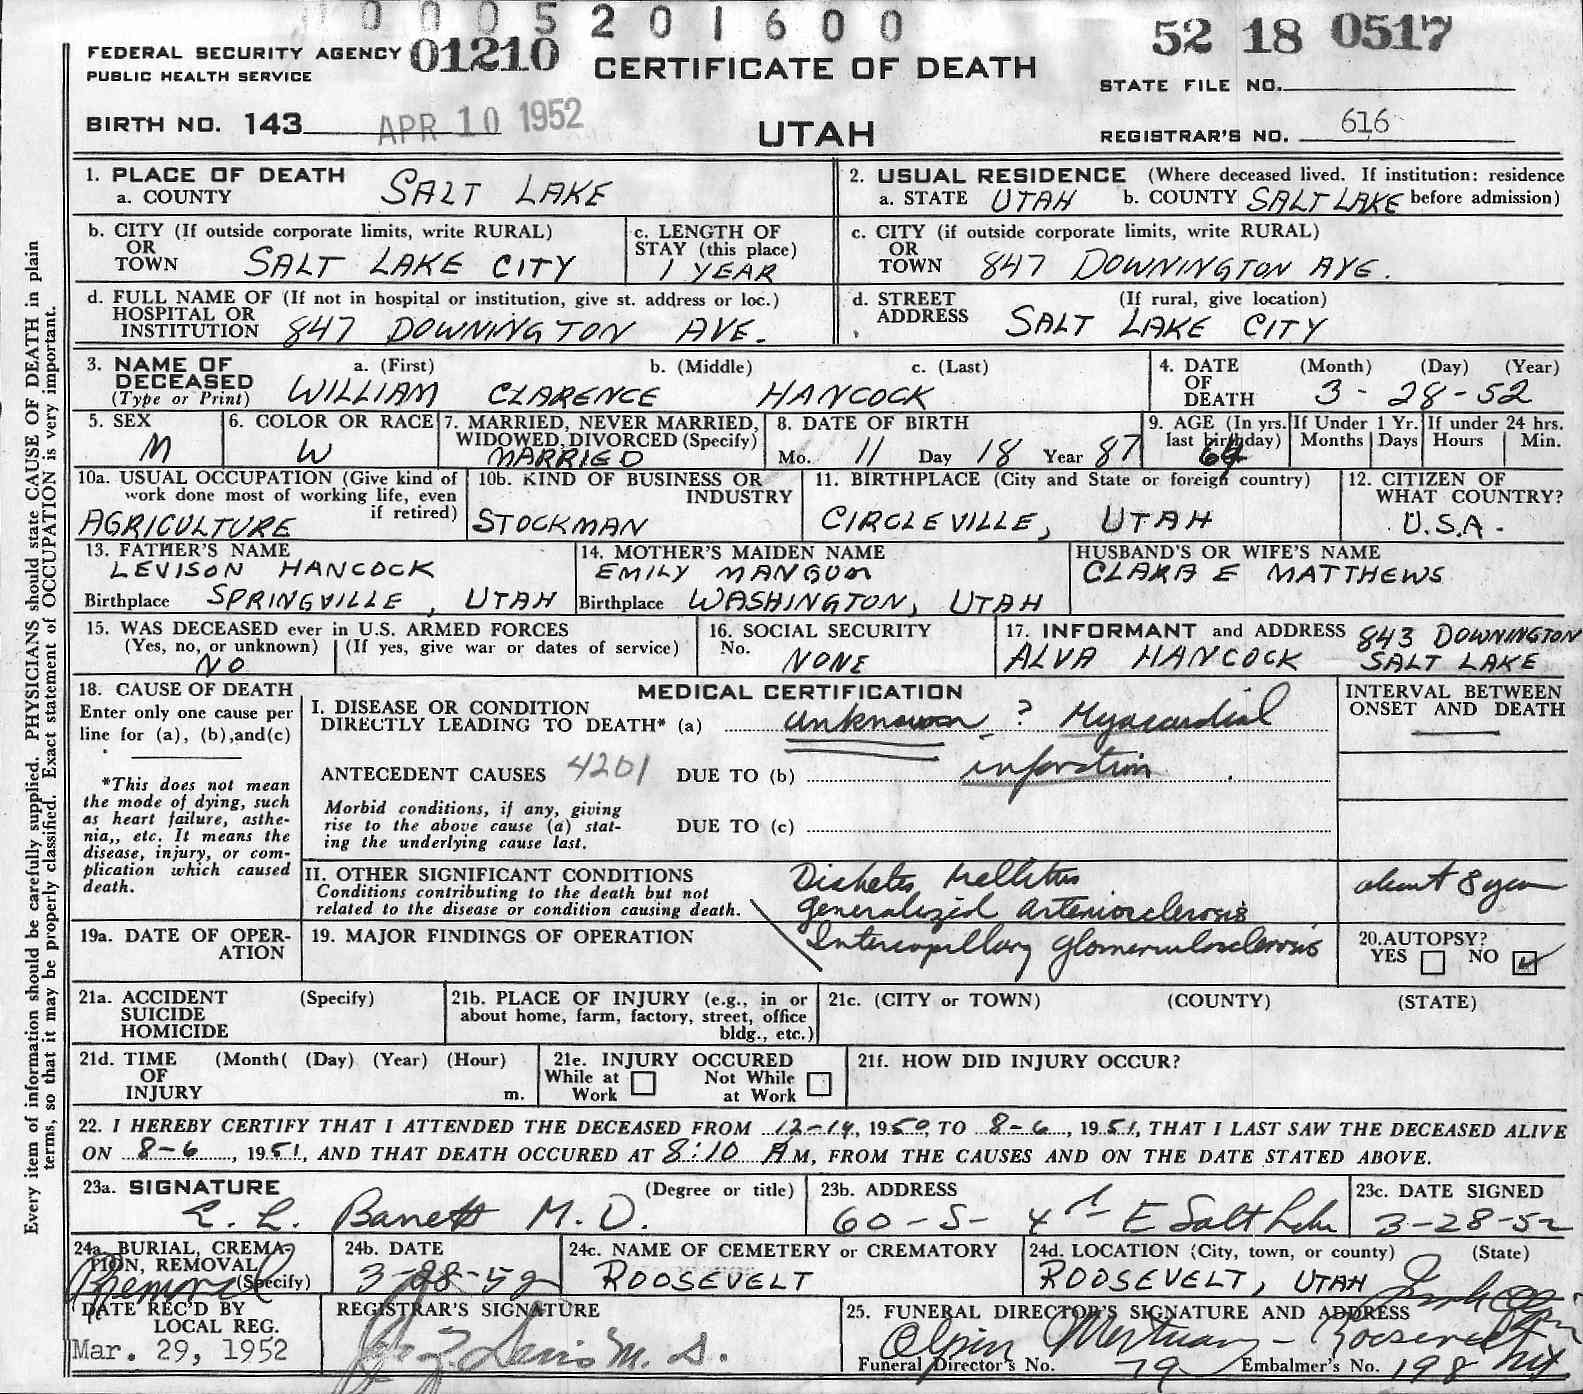 0 0 0 5 2 0 1 6 0 0
FEDERAL SECURITY AGENCY 01210
PUBLIC HEALTH SERVICE
CERTIFICATE OF DEATH
52 18 0517
STATE FILE NO.
BIRTH NO. 143 APR 10 1952
UTAH
REGISTRAR'S NO. 616
1. PLACE OF DEATH
a. COUNTY SALT LAKE
2. USUAL RESIDENCE (Where deceased lived. If institution: residence
a. STATE UTAH b. COUNTY SALT LAKE before admission)
b. CITY (If outside corporate limits, write RURAL)
OR
TOWN SALT LAKE CITY
c. LENGTH OF
STAY (this place)
1 YEAR
c. CITY (if outside corporate limits, write RURAL)
OR
TOWN 847 DOWNINGTON AVE.
d. FULL NAME OF (If not in hospital or institution, give st. address or loc.)
HOSPITAL OR
INSTITUTION 847 DOWNINGTON AVE.
d. STREET (If rural, give location)
ADDRESS SALT LAKE CITY
3. NAME OF a. (First) b. (Middle) c. (Last)
DECEASED
(Type or Print) WILLIAM CLARENCE HANCOCK
4. DATE (Month) (Day) (Year)
OF
DEATH 3 - 28 - 52
5. SEX
M
6. COLOR OR RACE
W
7. MARRIED, NEVER MARRIED,
WIDOWED, DIVORCED (Specify)
MARRIED
8. DATE OF BIRTH
Mo. 11 Day 18 Year 87
9. AGE (In yrs.
last birthday)
64
If Under 1 Yr.
Months Days
If under 24 hrs.
Hours Min.
10a. USUAL OCCUPATION (Give kind of
work done most of working life, even
if retired)
AGRICULTURE
10b. KIND OF BUSINESS OR
INDUSTRY
STOCKMAN
11. BIRTHPLACE (City and State or foreign country)
CIRCLEVILLE, UTAH
12. CITIZEN OF
WHAT COUNTRY?
U.S.A.
13. FATHER'S NAME
LEVISON HANCOCK
Birthplace SPRINGVILLE, UTAH
14. MOTHER'S MAIDEN NAME
EMILY MANGUM
Birthplace WASHINGTON, UTAH
HUSBAND'S OR WIFE'S NAME
CLARA E MATTHEWS
15. WAS DECEASED ever in U.S. ARMED FORCES
(Yes, no, or unknown) (If yes, give war or dates of service)
NO
16. SOCIAL SECURITY
No.
NONE
17. INFORMANT and ADDRESS 843 DOWNINGTON
ALVA HANCOCK SALT LAKE
18. CAUSE OF DEATH
Enter only one cause per
line for (a), (b), and (c)
*This does not mean
the mode of dying, such
as heart failure, asthe-
nia,, etc. It means the
disease, injury, or com-
plication which caused
death.
MEDICAL CERTIFICATION
I. DISEASE OR CONDITION
DIRECTLY LEADING TO DEATH* (a) unknown ? Myocardial
ANTECEDENT CAUSES 4201 DUE TO (b) infarction
Morbid conditions, if any, giving
rise to the above cause (a) stat-
ing the underlying cause last.
DUE TO (c)
INTERVAL BETWEEN
ONSET AND DEATH
II. OTHER SIGNIFICANT CONDITIONS
Conditions contributing to the death but not
related to the disease or condition causing death.
Diabetes Mellitus
generalized arteriosclerosis
Intercapillary glomerulosclerosis
about 8 years
19a. DATE OF OPER-
ATION
19. MAJOR FINDINGS OF OPERATION
20. AUTOPSY?
YES NO
21a. ACCIDENT (Specify)
SUICIDE
HOMICIDE
21b. PLACE OF INJURY (e.g., in or
about home, farm, factory, street, office
bldg., etc.)
21c. (CITY or TOWN) (COUNTY) (STATE)
21d. TIME (Month( (Day) (Year) (Hour)
OF
INJURY m.
21e. INJURY OCCURED
While at Work
Not While at Work
21f. HOW DID INJURY OCCUR?
22. I HEREBY CERTIFY THAT I ATTENDED THE DECEASED FROM 12-14, 1950, TO 8-6, 1951, THAT I LAST SAW THE DECEASED ALIVE
ON 8-6, 1951, AND THAT DEATH OCCURED AT 8:10 AM, FROM THE CAUSES AND ON THE DATE STATED ABOVE.
23a. SIGNATURE (Degree or title)
E. L. Barrett M.D.
23b. ADDRESS
60-S- 4th E Salt Lake
23c. DATE SIGNED
3-28-52
24a. BURIAL, CREMA-
TION, REMOVAL
(Specify)
Removal
24b. DATE
3-28-52
24c. NAME OF CEMETERY or CREMATORY
ROOSEVELT
24d. LOCATION (City, town, or county) (State)
ROOSEVELT, UTAH
DATE REC'D BY
LOCAL REG.
Mar. 29, 1952
REGISTRAR'S SIGNATURE
Davis M.D.
25. FUNERAL DIRECTOR'S SIGNATURE AND ADDRESS
Olpin Mortuary - Roosevelt Ut
Funeral Director's No. 79 Embalmer's No. 198
Every item of information should be carefully supplied. PHYSICIANS should state CAUSE OF DEATH in plain
terms, so that it may be properly classified. Exact statement of OCCUPATION is very important.